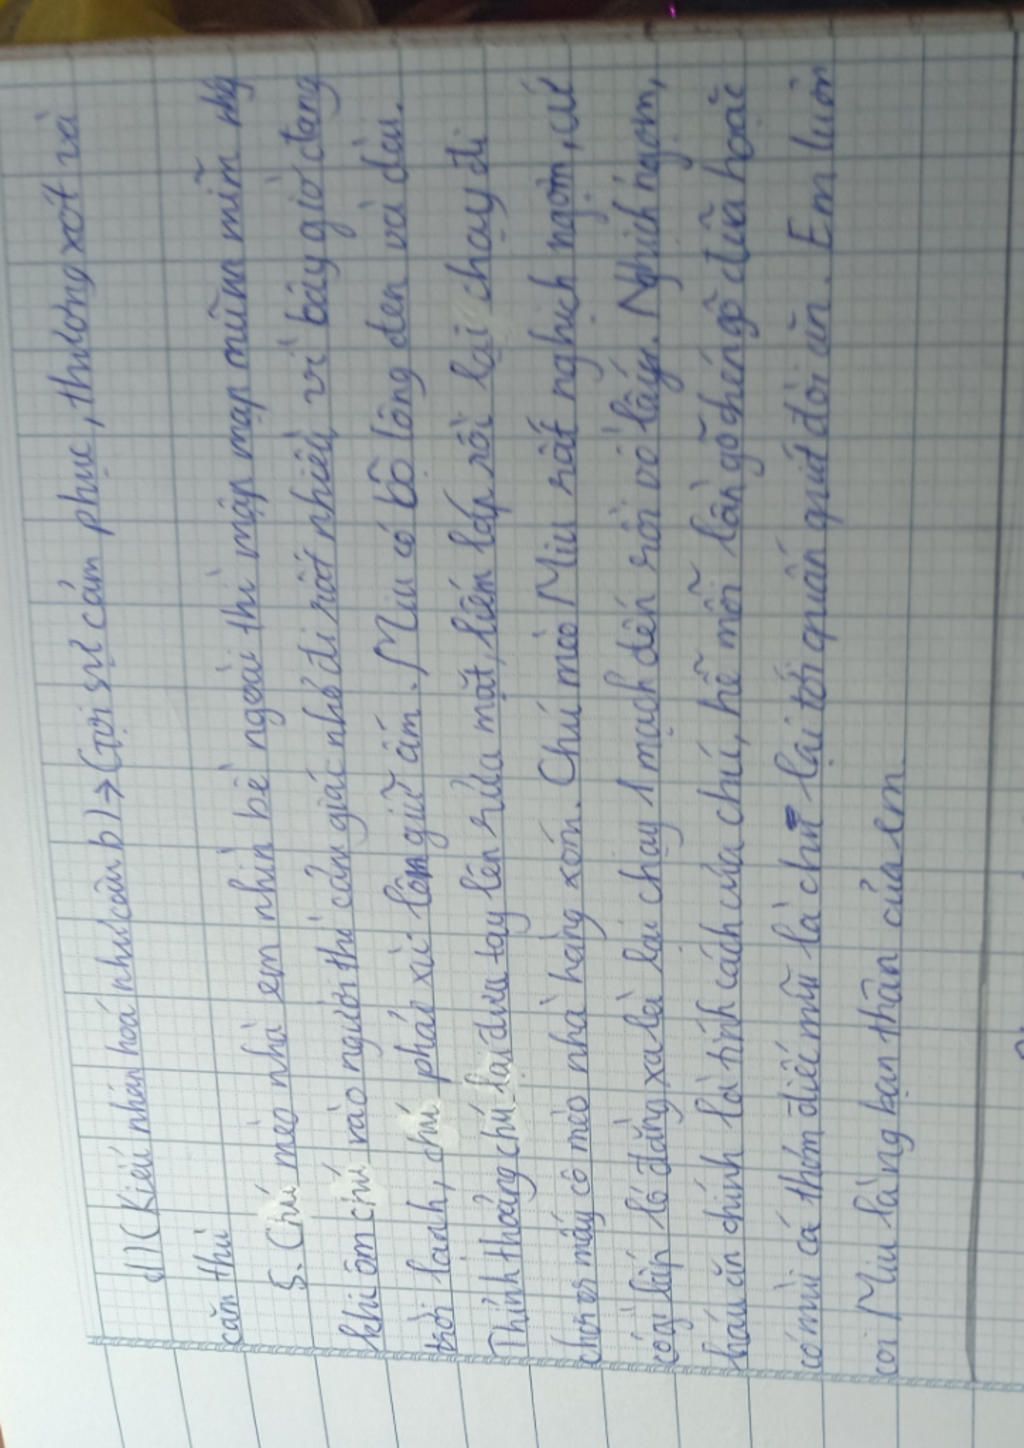 d) (Kiểu nhân hoá như câu b) → Gợi sự cảm phục, thương xót và
căm thù
5. Chú mèo nhà em nhìn bề ngoài thì mập mạp mũm mĩm nhg
khi ôm chú vào người thì cảm giác nhỏ đi rất nhiều vì bây giờ đang
trời lạnh, chú phải xù lông giữ ấm. Miu có bộ lông đen và dày.
Thỉnh thoảng chú lại đưa tay lên rửa mặt, liếm láp rồi lại chạy đi
chơi vs mấy cô mèo nhà hàng xóm. Chú mèo Miu rất nghịch ngợm, cứ
có ai lấp ló đằng xa là lại chạy 1 mạch đến rồi vồ lấy. Nghịch ngợm,
háu ăn chính là tính cách của chú, hễ mỗi lần gõ chén gõ đũa hoặc
có mùi cá thơm điếc mũi là chú lại tới quấn quít đòi ăn. Em luôn
coi Miu là ng bạn thân của em